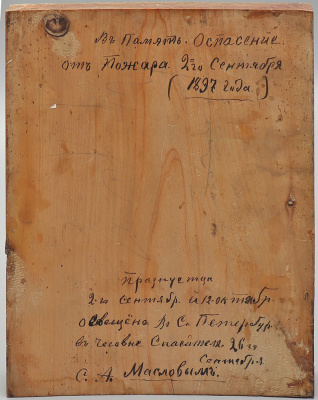 Въ Память. Оспасение
отъ Пожара 2го Сентября
(1897 года.)
Празнуетца
2-го сентябр. и 12 октябр
освещёна В С. Петербур.
въ Часовне Спасителя. 26го
Сентября
С. А. Масловымъ.